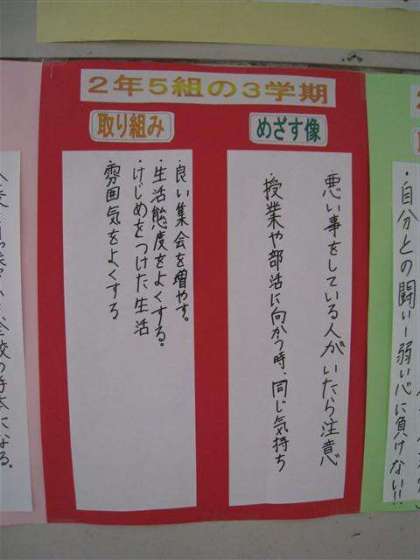 2年5組の3学期
めざす像
悪い事をしている人がいたら注意
授業や部活に向かう時、同じ気持ち
取り組み
良い集会を増やす。
・生活態度をよくする。
・けじめをつけた生活
雰囲気をよくする
・自分との闘い!弱い心に負けない!!